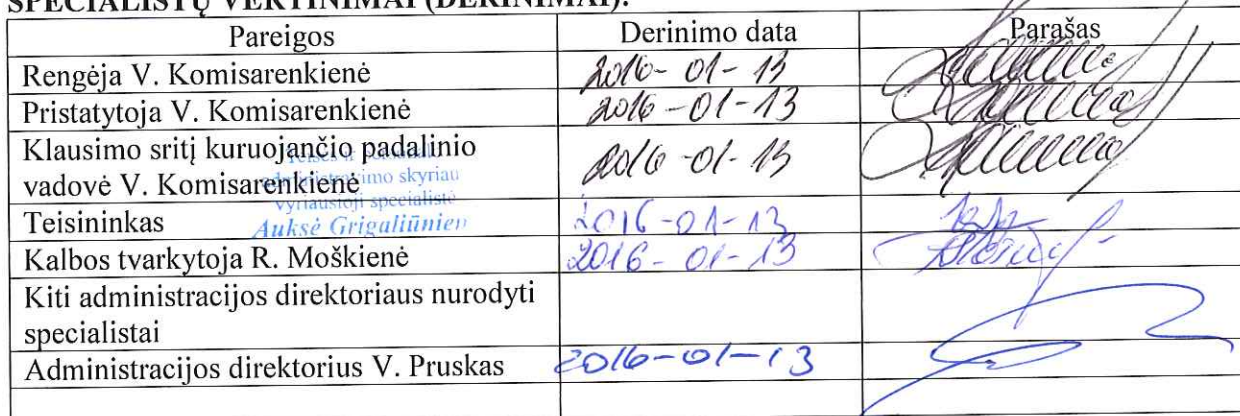 SPECIALISTŲ VERTINIMAI (DERINIMAI):
Pareigos Derinimo data Parašas
Rengėja V. Komisarenkienė 2016-01-13
Pristatytoja V. Komisarenkienė 2016-01-13
Klausimo sritį kuruojančio padalinio
vadovė V. Komisarenkienė 2016-01-13
administravimo skyriau
vyriausioji specialistė
Teisininkas Auksė Grigaliūnien 2016-01-13
Kalbos tvarkytoja R. Moškienė 2016-01-13
Kiti administracijos direktoriaus nurodyti
specialistai
Administracijos direktorius V. Pruskas 2016-01-13